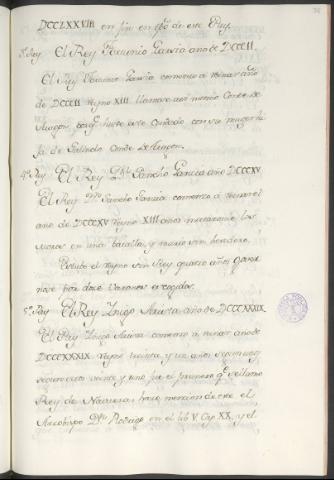 DCCLXXXIII en fin en tpo de este Rey.
3º Rey El Rey Fortunio Garcia año de DCCCII.
El Rey Fortunio Garcia comenzo a reinar año
de DCCCII Reyno XIII llamose asi mesmo Conde de
Aragon, porq. hubo este Condado con su muger hi
ja de Galindo Conde de Aragon.
4º Rey El Rey Dn. Sancho Garcia año DCCCXV
El Rey Dn. Sancho Garcia comenzo a reinar el
año de DCCCXV Reyno XIII años mataronle los
Moros en una batalla, y murio sin heredero.
Estubo el reyno sin Rey quatro años gover
nose por doce Varones escogidos.
5º Rey El Rey Iñigo Arista año de DCCCXXXIX
El Rey Iñigo Arista comenzo á reinar año de
DCCCXXXIX reyno treinta, y un años segun unos,
segun otros veinte y uno fue el primero q. se llamo
Rey de Navarra: hace mencion de este el
Arzobispo Dn. Rodrigo en el lib V. Cap XX, y el